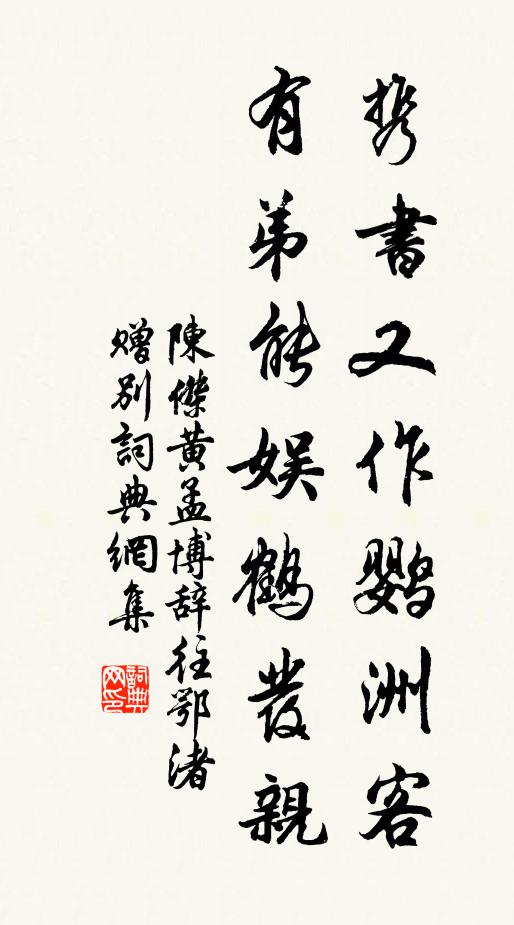 携書又作鹦洲客
有弟能娱鶴发親
陳傑黄孟博辞往鄂渚
赠别詞典網集
詞典
网印